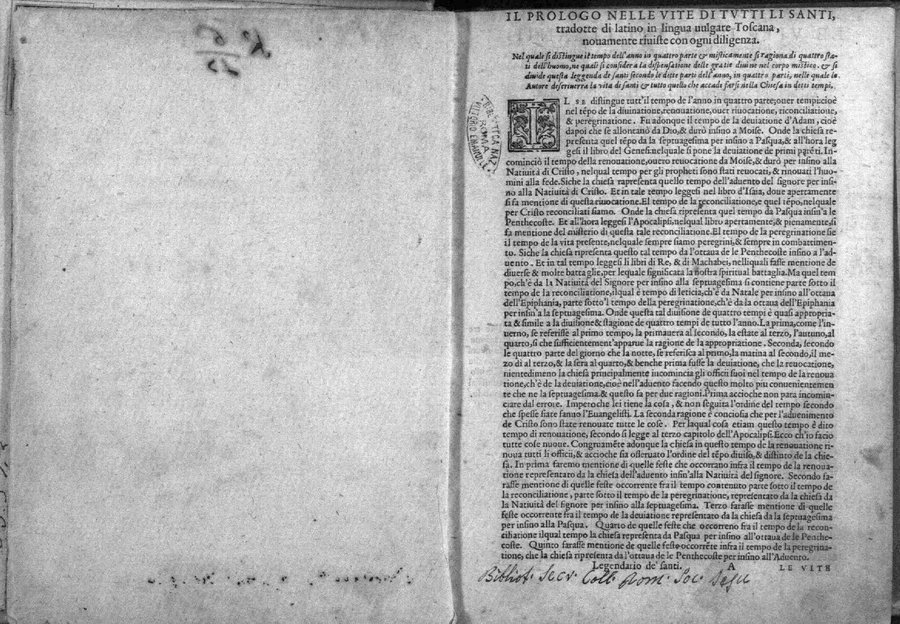 IL PROLOGO NELLE VITE DI TVTTI LI SANTI,
tradotte di latino in lingua uulgare Toscana,
nouamente riuiste con ogni diligenza.
Nel quale si distingue il tempo dell'anno in quattro parte & misticamente si ragiona di quattro sta
ti dell'huomo, ne quali si considera la dispensatione delle gratie diuine nel corpo mistico. & si
diuide questa leggenda de santi secondo le dette parti dell'anno, in quattro parti, nelle quale lo
Autore descriuerra la vita de santi & tutto quello che accade farsi nella Chiesa in detti tempi.
IL SE distingue tutt'il tempo de l'anno in quattro parte; ouer tempi: cioè
nel tẽpo de la diuinatione, renouatione, ouer riuocatione, riconciliatione,
& peregrinatione. Fu adonque il tempo de la deuiatione d'Adam, cioè
dapoi che se allontanò da Dio, & durò insino a Moise. Onde la chiesa re-
presenta quel tẽpo da la septuagesima per insino a Pasqua, & all'hora leg
gesi il libro del Genesi: nelquale si pone la deuiatione de primi parẽti. In-
cominciò il tempo della renouatione, ouero reuocatione da Moise, & durò per insino alla
Natiuità di Cristo, nelqual tempo per gli propheti sono stati reuocati, & rinouati l'huo-
mini alla fede. Siche la chiesa rapresenta quello tempo dell'aduento del signore per insi-
no alla Natiuità di Cristo. Et in tale tempo leggesi nel libro d'Isaia, doue apertamente
si fa mentione di questa riuocatione. El tempo de la reconciliatione, e quel tẽpo, nelquale
per Cristo reconciliati siamo. Onde la chiesa ripresenta quel tempo da Pasqua insin'a le
Pentecoste. Et all'hora legesi l'Apocalipsi, nelqual libro apertamente, & pienamente, si
fa mentione del misterio di questa tale reconciliatione. El tempo de la peregrinatione sie
il tempo de la vita presente, nelquale sempre siamo peregrini, & sempre in combattimen-
to. Siche la chiesa ripresenta questo tal tempo da l'ottaua de le Penthecoste insino a l'ad-
uento. Et in tal tempo leggesi li libri de Re, & di Machabei, nelli quali fasse mentione de
diuerse & molte battaglie, per lequale significata la nostra spiritual battaglia. Ma quel tem
po, ch'è da la Natiuità del Signore per insino alla septuagesima si contiene parte sotto il
tempo de la reconciliatione, ilqual è tempo di leticia, ch'è da Natale per insino all'ottaua
dell'Epiphania, parte sotto'l tempo della peregrinatione, ch'è da la ottaua dell'Epiphania
per insin'a la septuagesima. Onde questa tal diuisione de quattro tempi è quasi appropria-
ta & simile a la diuisione & stagione de quattro tempi de tutto l'anno. La prima, come l'in-
uerno, se referisse al primo tempo, la primauera al secondo, la estate al terzo, l'autuno, al
quarto, si che sufficientement'apparue la ragione de la appropriatione. Seconda, secondo
le quattro parte del giorno che la notte, se referisca al primo, la matina al secondo, il me-
zo dì al terzo, & la sera al quarto, & benche prima fusse la deuiatione, che la reuocatione,
nientedimeno la chiesa principalmente incomincia gli officii suoi nel tempo de la renoua
tione, ch'è de la deuiatione, cioè nell'aduento facendo questo molto piu conuenientemente
che ne la septuagesima. & questo fa per due ragioni. Prima accioche non para incomin-
ciare dal errore. Imperoche lei tiene la cosa, & non seguita l'ordine del tempo secondo
che spesse fiate fanno l'Euangelisti. La seconda ragione è conciosia che per l'aduenimento
de Cristo sono state renouate tutte le cose. Per laqual cosa etiam questo tempo è dito
tempo di renouatione, secondo si legge al terzo capitolo dell'Apocalipsi. Ecco ch'io facio
tutte cose nuoue. Congruamẽte adonque la chiesa in questo tempo de la renouatione ri-
noua tutti li officii, & accioche sia osseruato l'ordine del tẽpo diuiso, & distinto de la chie-
sa. In prima faremo mentione di quelle feste che occorrano infra il tempo de la renoua-
tione representato da la chiesa dell'aduento insin'alla Natiuità del signore. Secondo fa-
rasse mentione di quelle feste occorrente fra il tempo contenuto parte sotto il tempo de
la reconciliatione, parte sotto il tempo de la peregrinatione, representato da la chiesa da
la Natiuità del signore per insino alla septuagesima. Terzo farasse mentione di quelle
feste occorrente fra il tempo de la deuiatione representato da la chiesa da la septuagesima
per insino alla Pasqua. Quarto de quelle feste che occorreno fra il tempo de la recon-
ciliatione ilqual tempo la chiesa representa da Pasqua per insino all'ottaua de le Penthe-
coste. Quinto farasse mentione de quelle feste occorrẽte infra il tempo de la peregrina-
tione, che la chiesa ripresenta da l'ottaua de le Penthecoste per insino all'Aduento.
Legendario de' santi. A LE VITE
Bibliot. Secr. Coll. Rom. Soc. Jesu